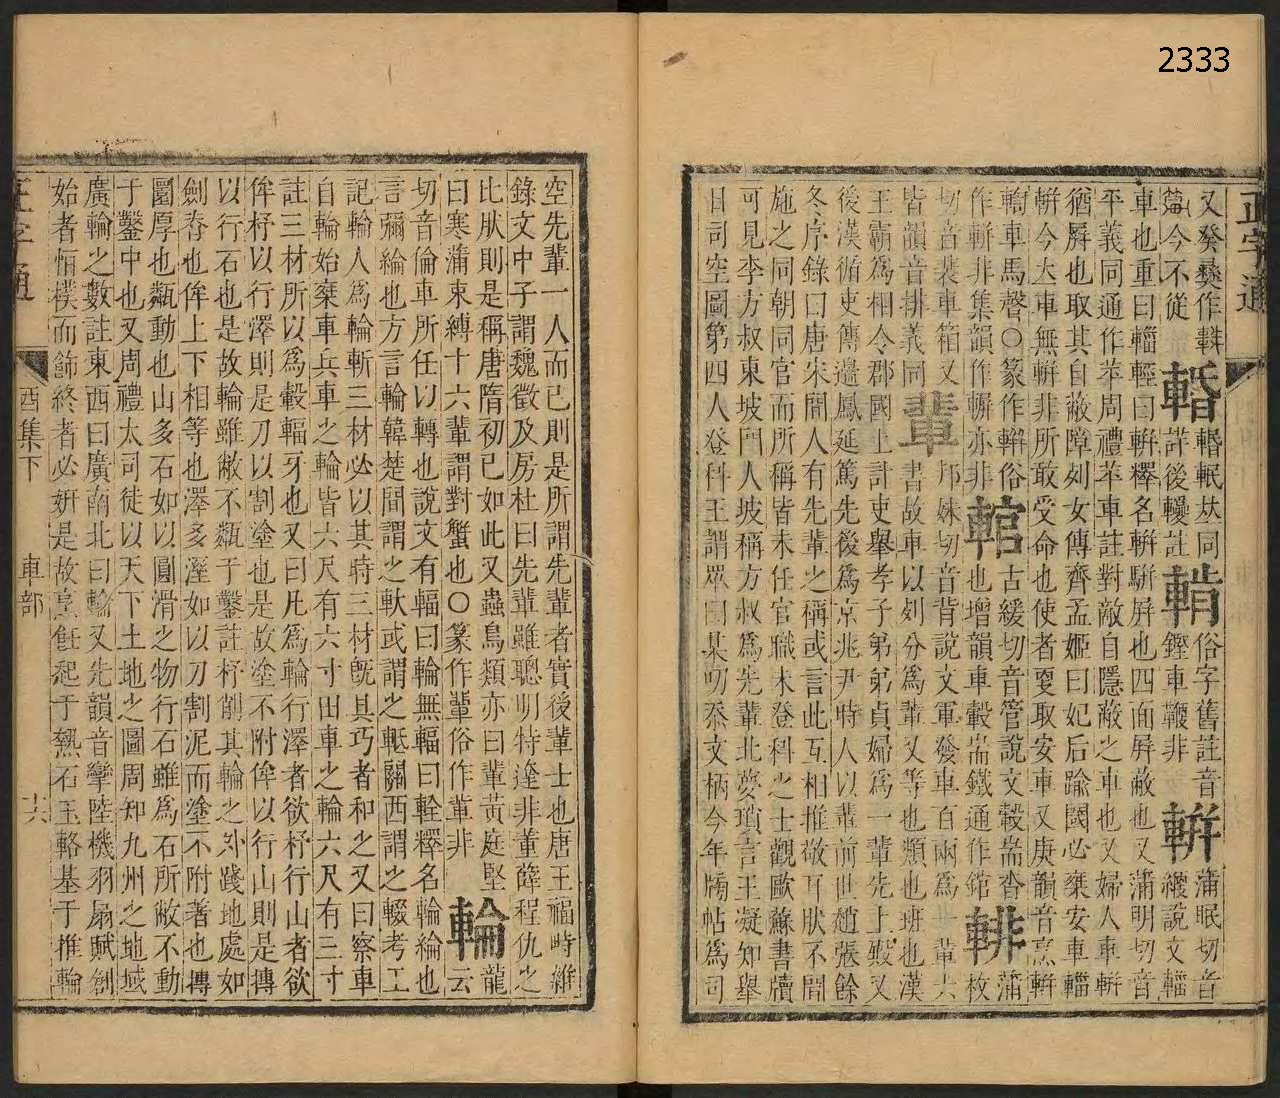 2333
正字通
又癸彝作䡛
䡢輽䡑䡻同
俗字舊註音
蒲眠切音
篇今不從
詳後轅註
鏗車鞭非
緶說文輜
車也重曰輜輕曰輧釋名輧駢屛也四面屛蔽也又蒲明切音
平義同通作苹周禮苹車註對敵自隱蔽之車也又婦人車輧
猶屛也取其自蔽障列女傳齊孟姬曰妃后踰國必乗安車輜
輧今大車無輧非所敢受命也使者更取安車又庚韻音烹輧
輷車馬聲〇篆作輧俗
作輧非集韻作軿亦非
輨
古緩切音管說文轂耑沓
也增韻車轂耑鐵通作錧
輫
蒲
枚
切音裴車箱又
皆韻音排義同
輩
邦妹切音背說文軍發車百兩爲一輩六
書故車以列分爲輩又等也類也班也漢
王霸爲相令郡國上計吏舉孝子弟弟貞婦爲一輩先上殿又
後漢循吏傳邊鳳延篤先後爲京兆尹時人以輩前世趙張餘
冬序錄曰唐宋間人有先輩之稱或言此互相推敬耳然不間
施之同朝同官而所稱皆未任官職未登科之士觀歐蘇書牘
可見李方叔東坡門人坡稱方叔爲先輩北夢瑣言王凝知舉
日司空圖第四人登科王謂眾曰某叨忝文柄今年牓帖爲司
空先輩一人而已則是所謂先輩者實後輩士也唐王福畤雜
錄文中子謂魏徵及房杜曰先輩雖聰明特達非董薛程仇之
比狀則是稱唐隋初已如此又蟲鳥類亦曰輩黃庭堅
曰寒蒲束縛十六輩謂對蟹也〇篆作輩俗作軰非
輪
龍
云
切音倫車所任以轉也說文有輻曰輪無輻曰輇釋名輪綸也
言彌綸也方言輪韓楚間謂之軑或謂之軝關西謂之輟考工
記輪人爲輪斬三材必以其時三材旣具巧者和之又曰察車
自輪始乗車兵車之輪皆六尺有六寸田車之輪六尺有三寸
註三材所以爲轂輻牙也又曰凡爲輪行澤者欲杼行山者欲
侔杼以行澤則是刀以割塗也是故塗不附侔以行山則是摶
以行石也是故輪雖敝不甐于鑿註杼削其輪之外踐地處如
劍脊也侔上下相等也澤多溼如以刀割泥而塗不附著也摶
圜厚也甐動也山多石如以圓滑之物行石雖爲石所敝不動
于鑿中也又周禮大司徒以天下土地之圖周知九州之地域
廣輪之數註東西曰廣南北曰輪又先韻音攣陸機羽扇賦創
始者恒樸而飾終者必妍是故烹飪起于熱石玉輅基于推輪
正字通
酉集下
車部
六